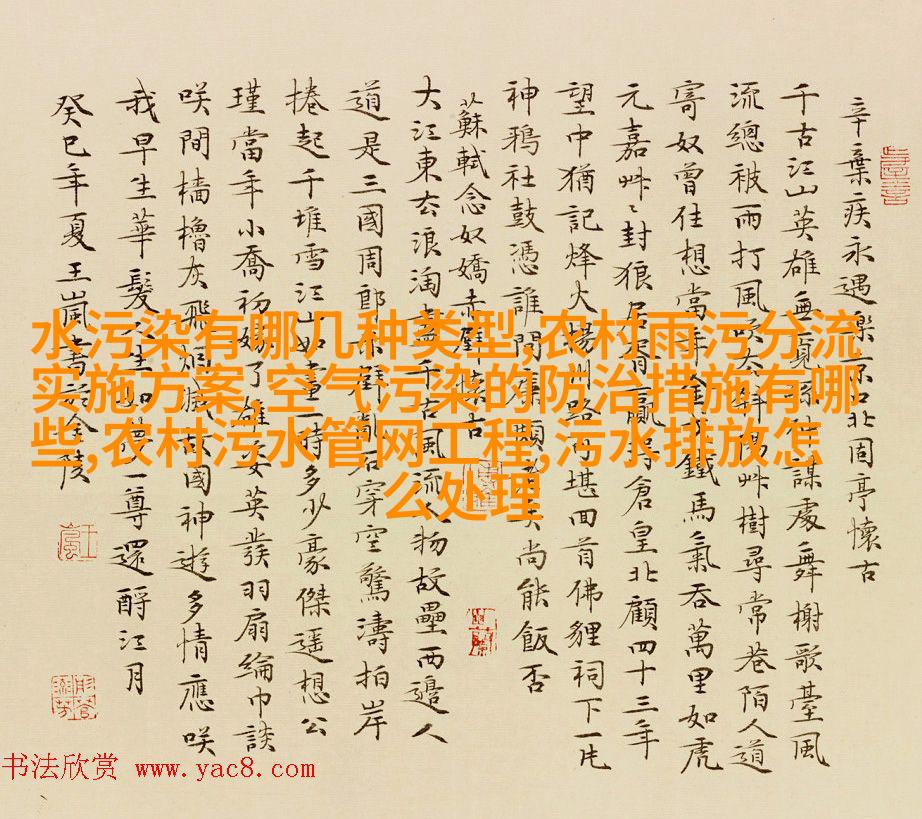 辛棄疾永遇樂京口北固亭懷古
千古江山英雄無覓孫仲謀處舞榭歌臺風
流總被雨打風吹去斜陽艸樹尋常巷陌人道
寄奴曾住想當年金戈鐵馬氣吞萬里如虎
元嘉艸〻封狼居胥贏得倉皇北顧四十三年
望中猶記烽火揚州路可堪回首佛貍祠下一片
神鴉社鼓憑誰問廉頗老矣尚能飯否
蘇軾念奴嬌赤壁懷古
大江東去浪淘盡千古風流人物故壘西邊人
道是三國周郎赤壁亂石穿空驚濤拍岸
捲起千堆雪江山如畫一時多少豪傑遥想公
瑾當年小喬初嫁了雄姿英發羽扇綸巾談
咲間檣櫓灰飛煙滅故國神遊多情應咲
我早生華髮人生如夢一尊還酹江月
癸巳年夏王嵐書於金陵
水污染有哪几种类型,农村雨污分流
实施方案,空气污染的防治措施有哪
些,农村污水管网工程,污水排放怎
么处理
书法欣赏 www.yac8.com